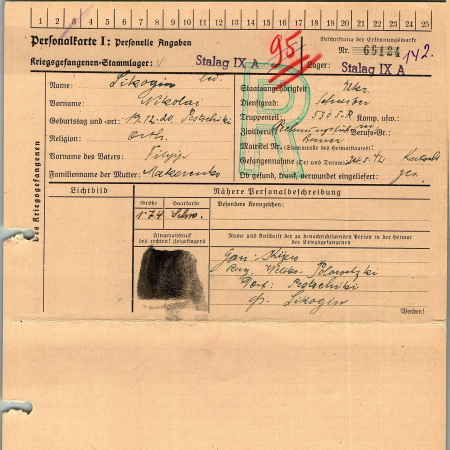 1 2 3 4 5 6 7 8 9 10 11 12 13 14 15 16 17 18 19 20 21 22 23 24 25
Personalkarte I: Personelle Angaben
Beschriftung der Erkennungsmarke
Nr. 69124
142.
95
Kriegsgefangenen-Stammlager: Stalag IX A
Lager: Stalag IX A
Des Kriegsgefangenen
Name: Sikogin led.
Vorname: Nikolai
Geburtstag und -ort: 19.12.20
Religion: Orth.
Vorname des Vaters: Filipp
Familienname der Mutter: Makarenko
Staatsangehörigkeit: Ukr.
Dienstgrad:
Truppenteil: 530 S.R. Komp. usw.:
Zivilberuf: Berufs-Gr.:
Matrikel Nr. (Stammrolle des Heimatstaates):
Gefangennahme (Ort und Datum): 24.5.42
Ob gesund, krank, verwundet eingeliefert: ges.
R
Lichtbild
Nähere Personalbeschreibung
Größe
Haarfarbe
Besondere Kennzeichen:
1.74
Schw.
Fingerabdruck
des rechten! Zeigefingers
Name und Anschrift der zu benachrichtigenden Person in der Heimat
des Kriegsgefangenen
Polowetzki
Dorf:
Sikogin
Wenden!